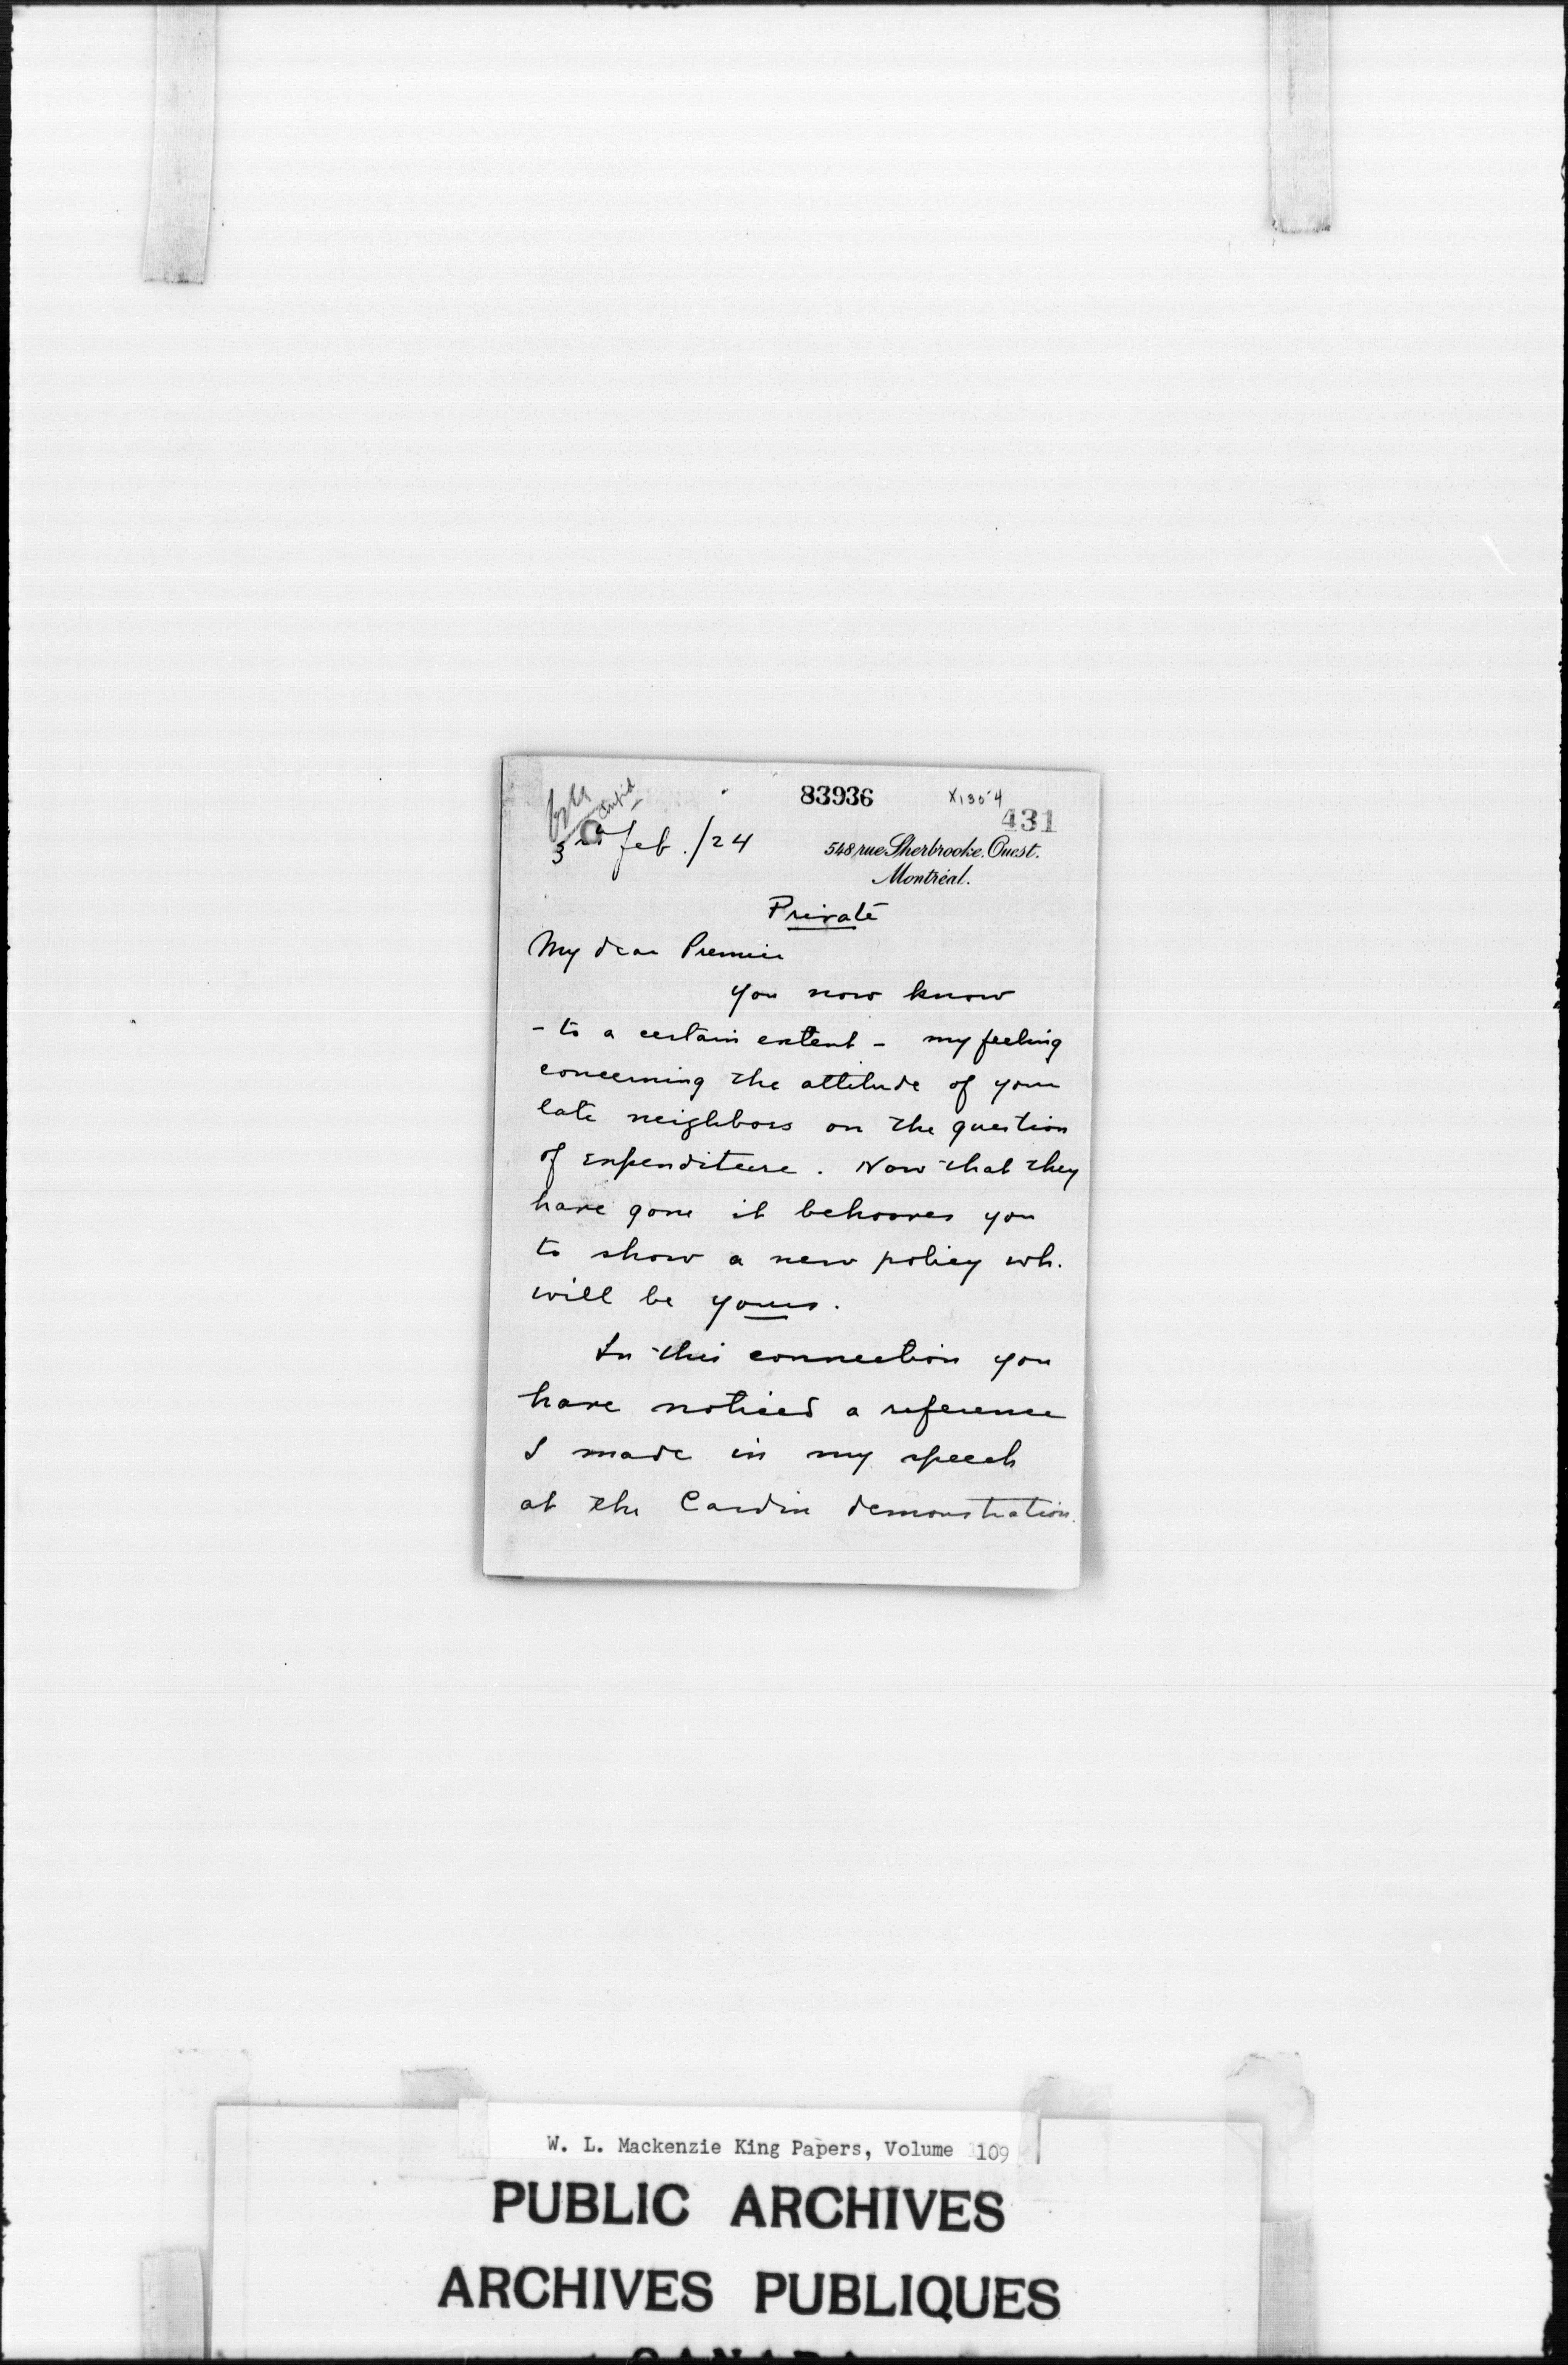 83936
X1354
431
3rd Feb. /24
548 rue Sherbrooke. Ouest.
Montréal.
Private
My dear Premier
You now know
- to a certain extent - my feeling
concerning the attitude of your
late neighbors on the question
of expenditure. Now that they
have gone it behooves you
to show a new policy wh.
will be yours.
In this connection you
have noticed a reference
I made in my speech
at the Cardin demonstration.
W. L. Mackenzie King Papers, Volume 109
PUBLIC ARCHIVES
ARCHIVES PUBLIQUES
CANADA